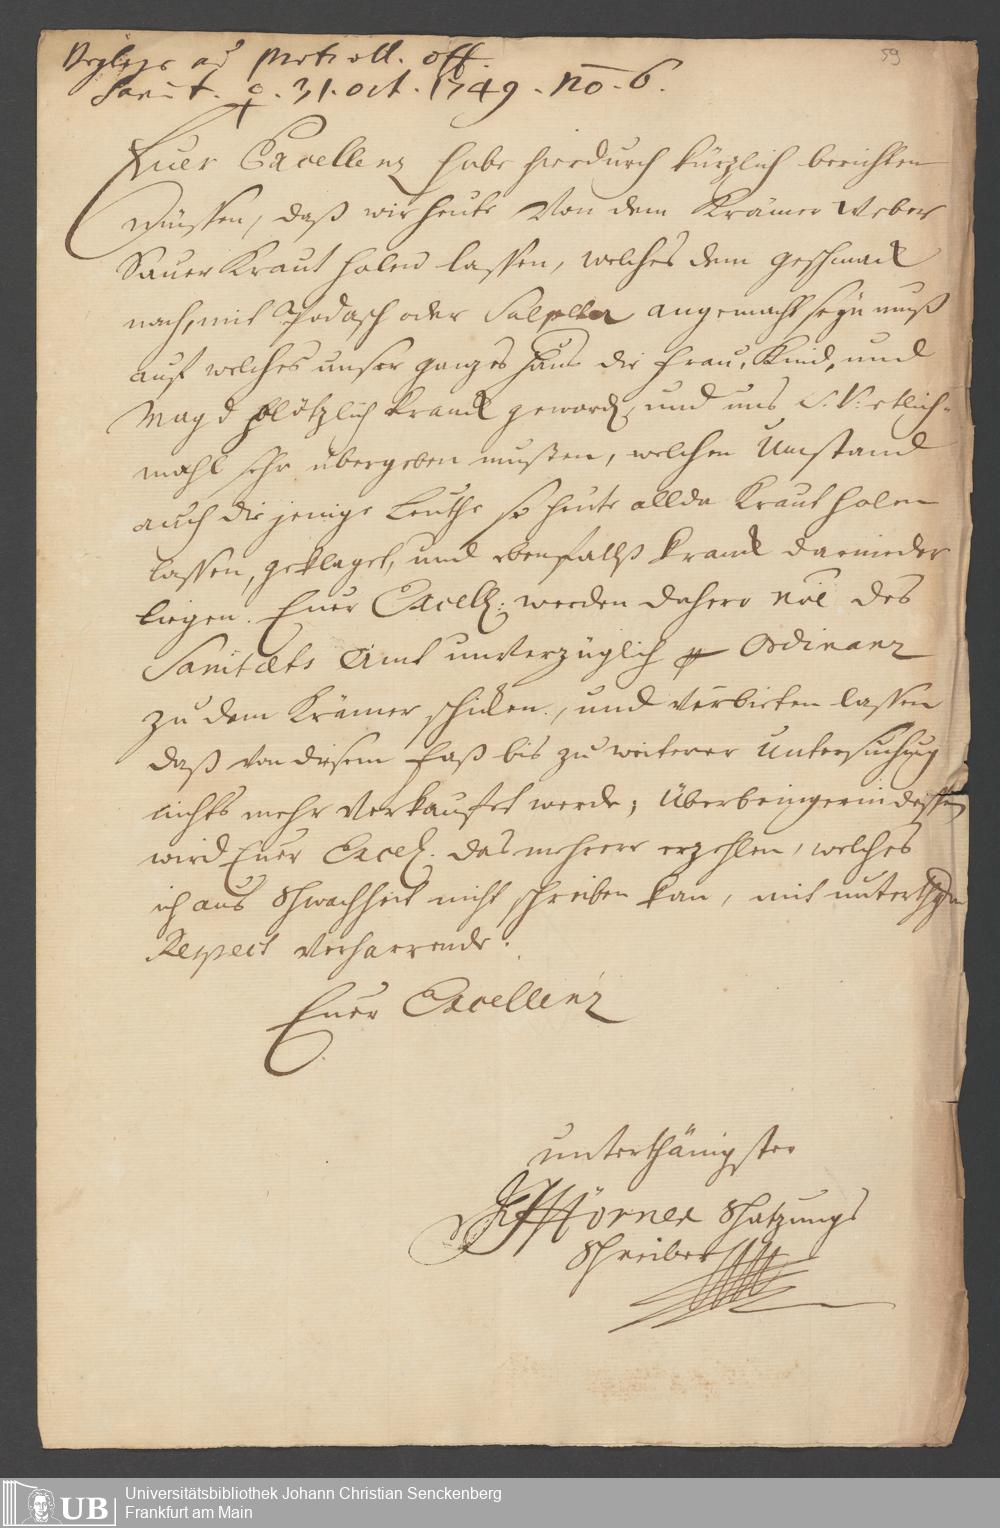 ad Protocoll. off.
Sanit. ♀. 31. oct. 1749. No. 6.
59
Euer Excellenz habe hierdurch kürzlich berichten
müssen, daß wir heute Von dem Krämer Weber
Sauer Kraut holen lassen, welches dem geschmack
nach, mit Podasch oder Salpetter angemacht seyn muß
auf welches unser ganzes Hauß die Frau, Kind, und
Magd plötzlich kranck geword, und uns S. V. etlich=
mahl sehr übergeben mußten, welchen Umstand
auch die jenige Leuthe so heute allda Kraut holen
lassen, geklaget, und ebenfallß kranck darnieder
liegen. Euer Excell: werden dahero noe des
Sanitæts Amt unverzüglich p Ordinanz
zu dem Krämer schicken, und verbieten lassen
daß von diesem Faß bis zu weiterer Untersuchung
nichts mehr verkauffet werde; Überbringerin dessen
wird Euer Excell. das mehrere erzehlen, welches
ich aus Schwachheit nicht schreiben kan, mit unterthgn
Respect verharrende.
Euer Excellenz
unterthänigster
Hörner Schatzungs
Schreiber
UB
Universitätsbibliothek Johann Christian Senckenberg
Frankfurt am Main